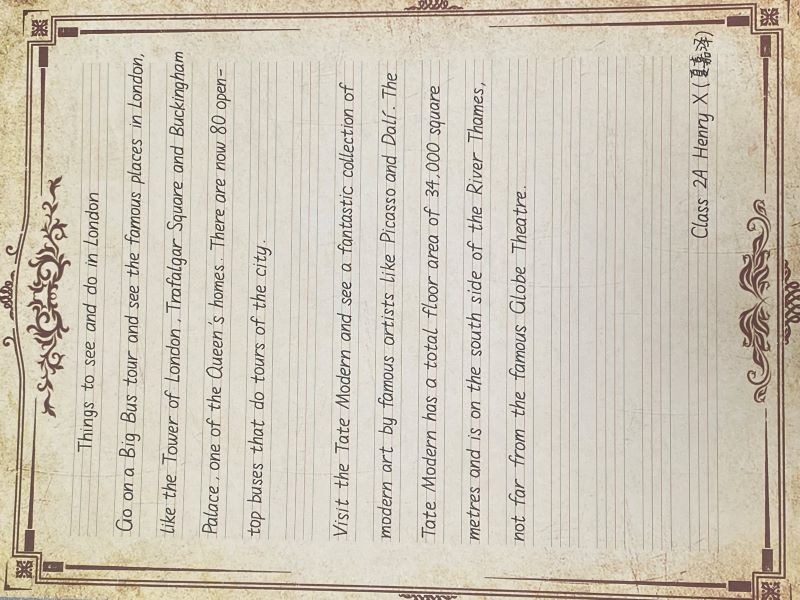 Things to see and do in London
Go on a Big Bus tour and see the famous places in London,
like the Tower of London, Trafalgar Square and Buckingham
Palace, one of the Queen's homes. There are now 80 open-
top buses that do tours of the city.
Visit the Tate Modern and see a fantastic collection of
modern art by famous artists like Picasso and Dalí. The
Tate Modern has a total floor area of 34,000 square
metres and is on the south side of the River Thames,
not far from the famous Globe Theatre.
Class 2A Henry X (夏嘉泽)